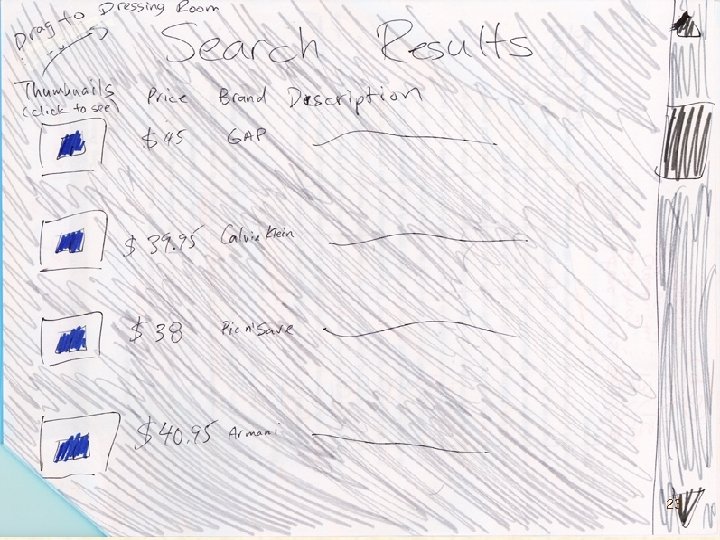 Drag to Dressing Room
Search Results
Thumbnails Price Brand Description
(click to see)
$45 GAP
$39.95 Calvin Klein
$38 Pic n' Save
$40.95 Armani
23